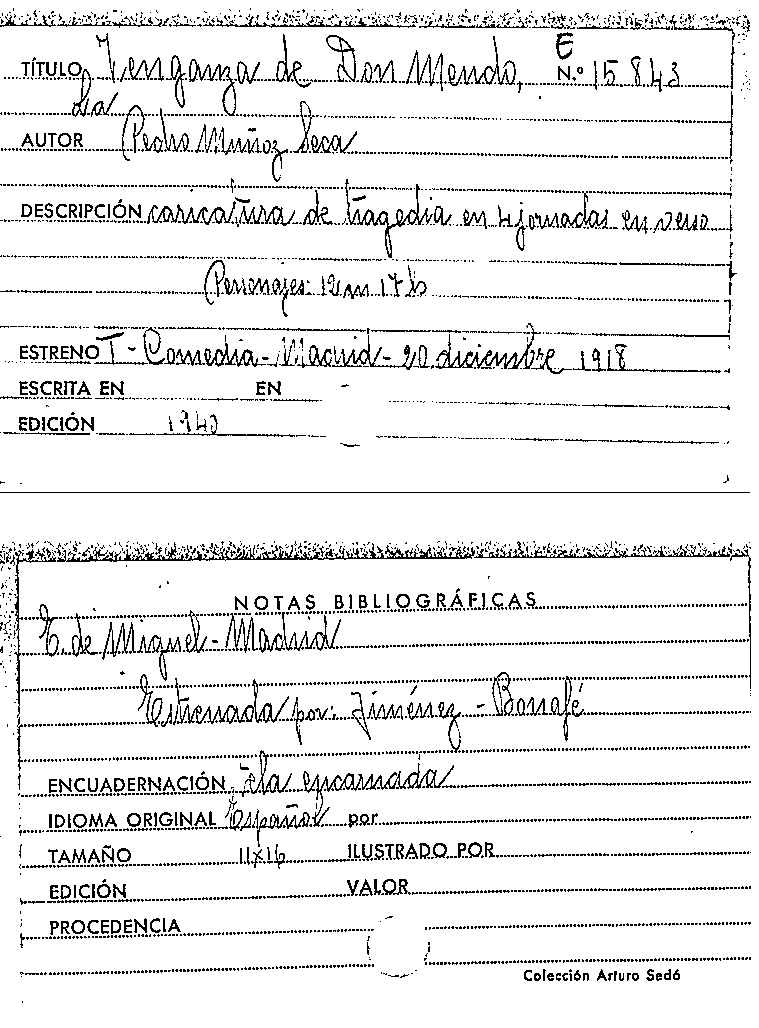 TÍTULO Venganza de Don Mendo, E N.º 15843
La
AUTOR Pedro Muñoz Seca
DESCRIPCIÓN caricatura de tragedia en 4 jornadas en verso
Personajes: 12 m 17 h
ESTRENO T - Comedia - Madrid - 20 diciembre 1918
ESCRITA EN EN
EDICIÓN 1940
NOTAS BIBLIOGRÁFICAS
E. de Miguel - Madrid
Estrenada por: Jiménez - Bonafé
ENCUADERNACIÓN Tela encarnada
IDIOMA ORIGINAL Español por
TAMAÑO 11x16 ILUSTRADO POR
EDICIÓN VALOR
PROCEDENCIA
Colección Arturo Sedó